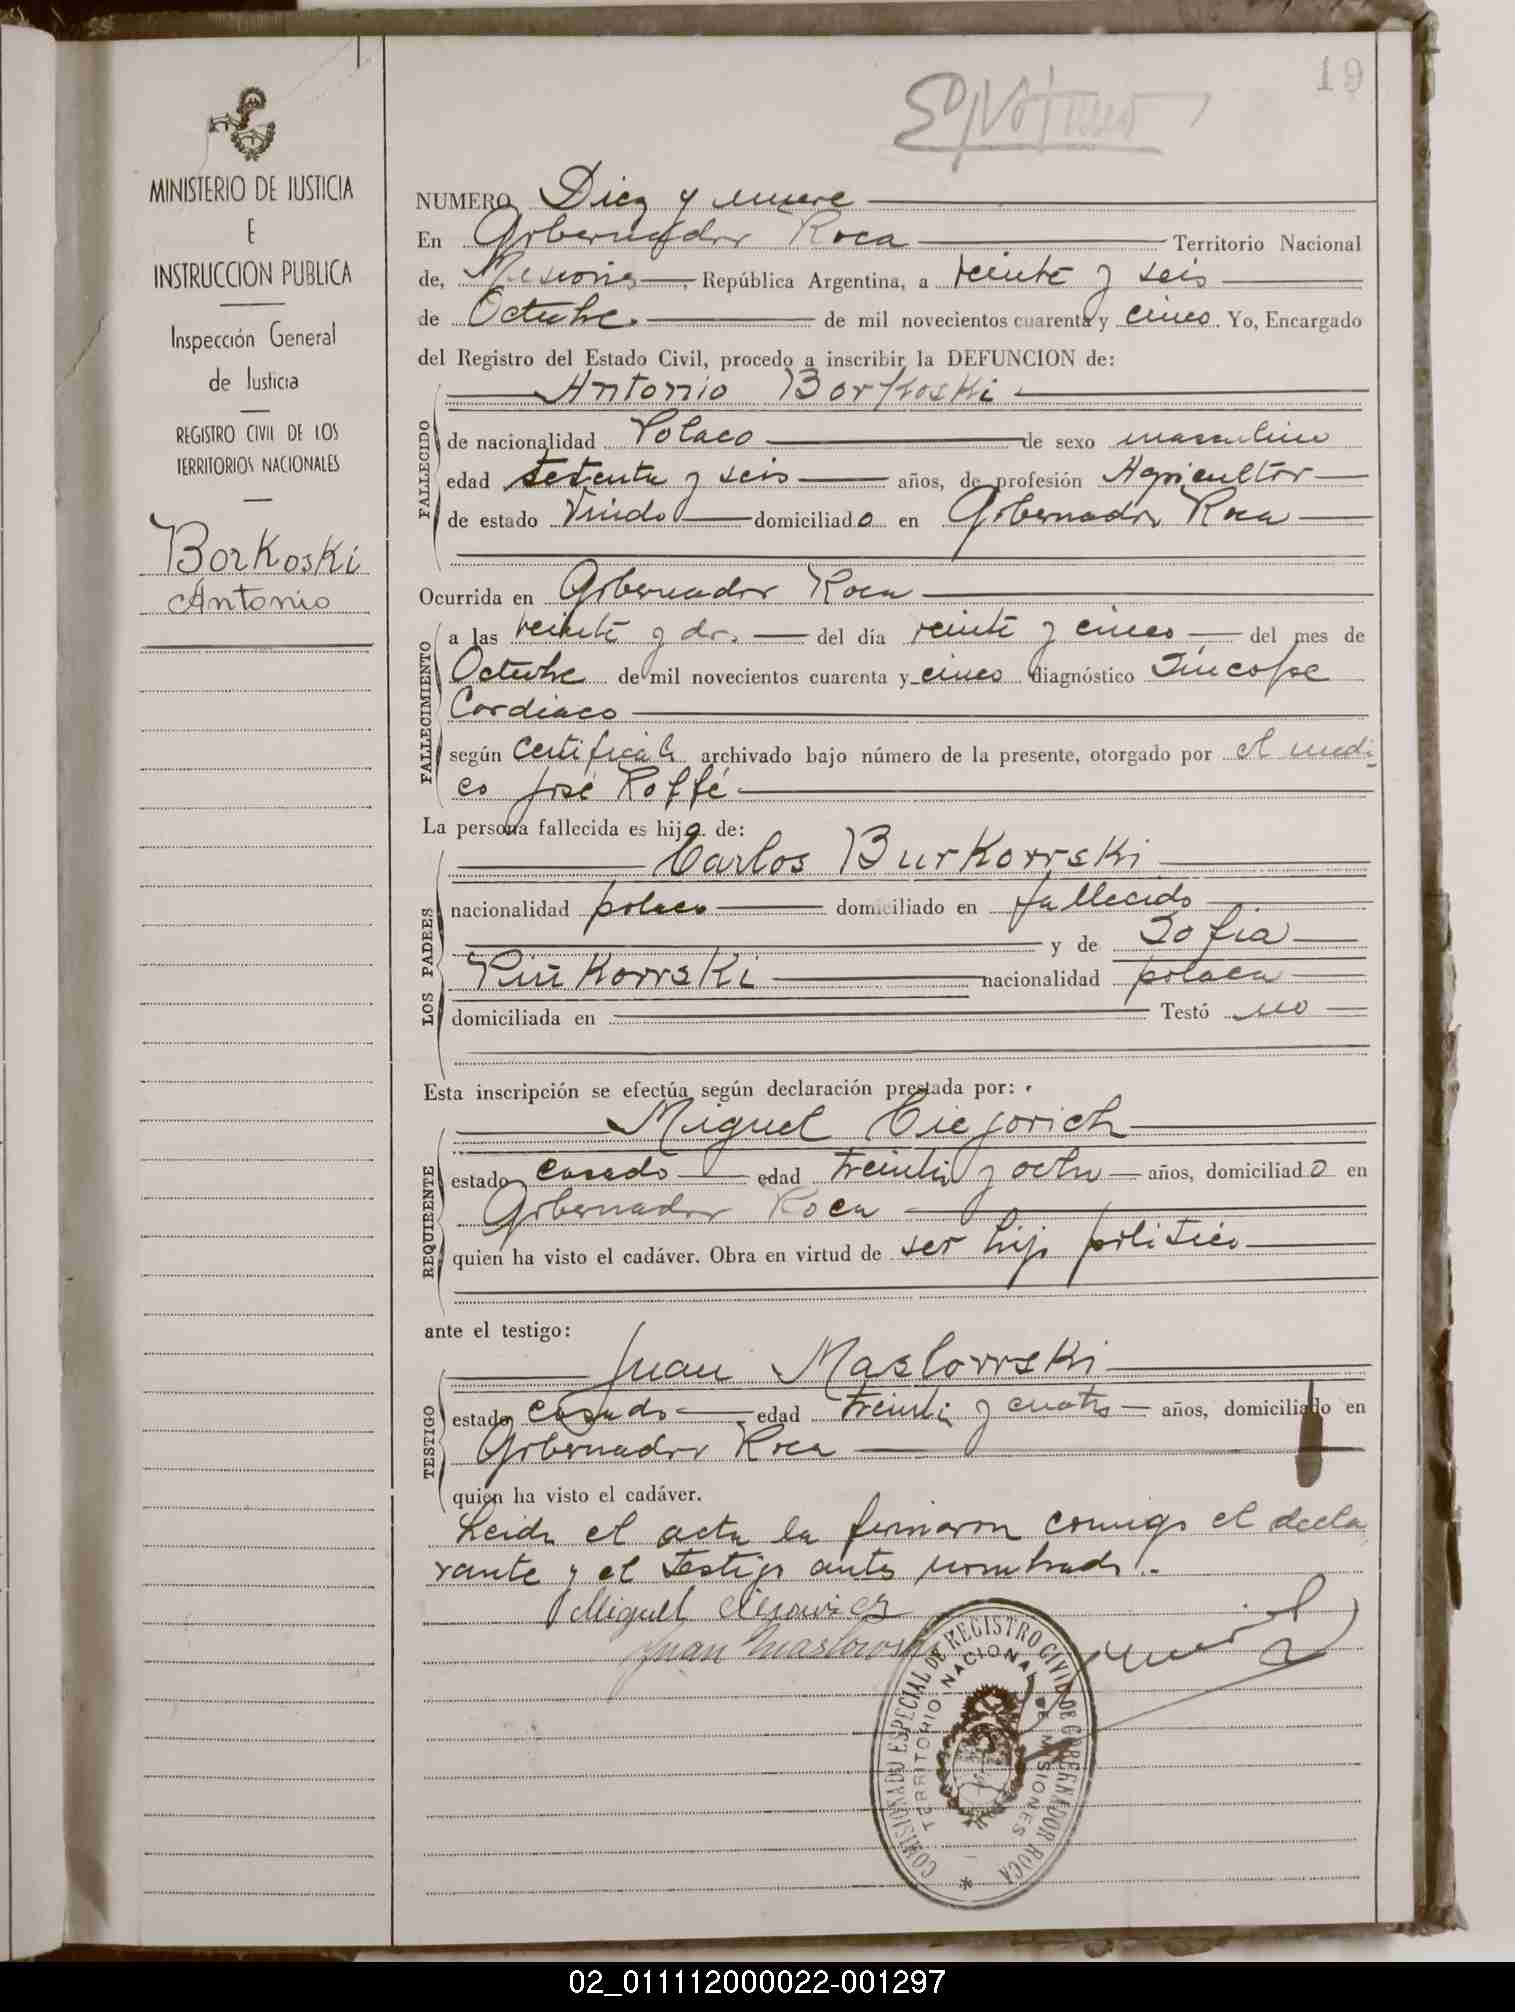 19
MINISTERIO DE JUSTICIA
E
INSTRUCCION PUBLICA
Inspección General
de Justicia
REGISTRO CIVIL DE LOS
TERRITORIOS NACIONALES
Borkoski
Antonio
NUMERO Diez y nueve
En Gobernador Roca Territorio Nacional
de, Misiones, República Argentina, a veinte y seis
de Octubre. de mil novecientos cuarenta y cinco. Yo, Encargado
del Registro del Estado Civil, procedo a inscribir la DEFUNCION de:
Antonio Borkoski
FALLECIDO
de nacionalidad Polaco de sexo masculino
edad setenta y seis años, de profesión Agricultor
de estado Viudo domiciliado en Gobernador Roca
Ocurrida en Gobernador Roca
FALLECIMIENTO
a las veinte y dos. del día veinte y cinco del mes de
Octubre de mil novecientos cuarenta y cinco diagnóstico Síncope
Cardiaco
según certificado archivado bajo número de la presente, otorgado por el medi-
co José Roffé
La persona fallecida es hijo de:
LOS PADRES
Carlos Burkowski
nacionalidad polaco domiciliado en fallecido
y de Sofia
nacionalidad polaca
domiciliada en Testó no
Esta inscripción se efectúa según declaración prestada por:
REQUIRENTE
Miguel Ciejovich
estado casado edad treinta y ocho años, domiciliado en
Gobernador Roca
quien ha visto el cadáver. Obra en virtud de ser hijo politico
ante el testigo:
TESTIGO
Juan Maslowski
estado casado edad treinta y cuatro años, domiciliado en
Gobernador Roca
quien ha visto el cadáver.
Leida el acta la firmaron conmigo el decla
rante y el testigo antes nombrado.-
Miguel
Juan Maslowski
COMISIONADO ESPECIAL DE REGISTRO CIVIL DE GOBERNADOR ROCA
TERRITORIO NACIONAL DE MISIONES
02_011112000022-001297